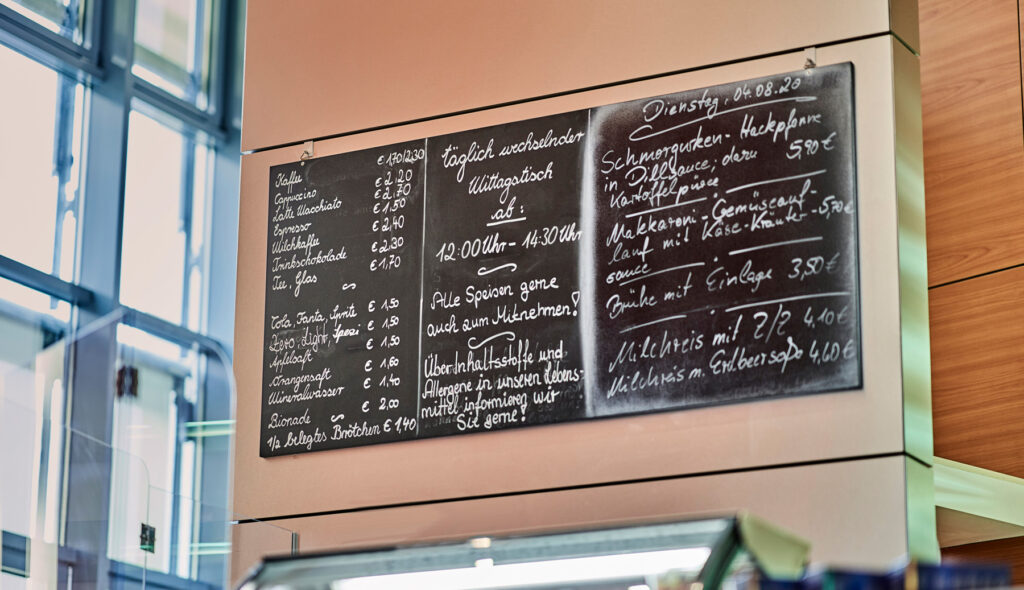 Kaffee € 1,70/2,30
Cappuccino € 2,20
Latte Macchiato € 2,70
Espresso € 1,50
Milchkaffee € 2,40
Trinkschokolade € 2,30
Tee, Glas € 1,70
Cola, Fanta, Sprite € 1,50
Zero, Light, Spezi € 1,50
Apfelsaft € 1,50
Orangensaft € 1,60
Mineralwasser € 1,40
Bionade € 2,00
1/2 belegtes Brötchen € 1,40
täglich wechselnder
Mittagstisch
ab:
12:00 Uhr - 14:30 Uhr
Alle Speisen gerne
auch zum Mitnehmen!
Über Inhaltsstoffe und
Allergene in unseren Lebens-
mittel informieren wir
Sie gerne!
Dienstag, 04.08.20
Schmorgurken-Hackpfanne
in Dillsauce, dazu 5,90 €
Kartoffelpüree
Makkaroni-Gemüseauf-
lauf mit Käse-Kräuter- 5,70 €
sauce
Brühe mit Einlage 3,50 €
Milchreis mit Z/Z 4,10 €
Milchreis m. Erdbeersoße 4,60 €